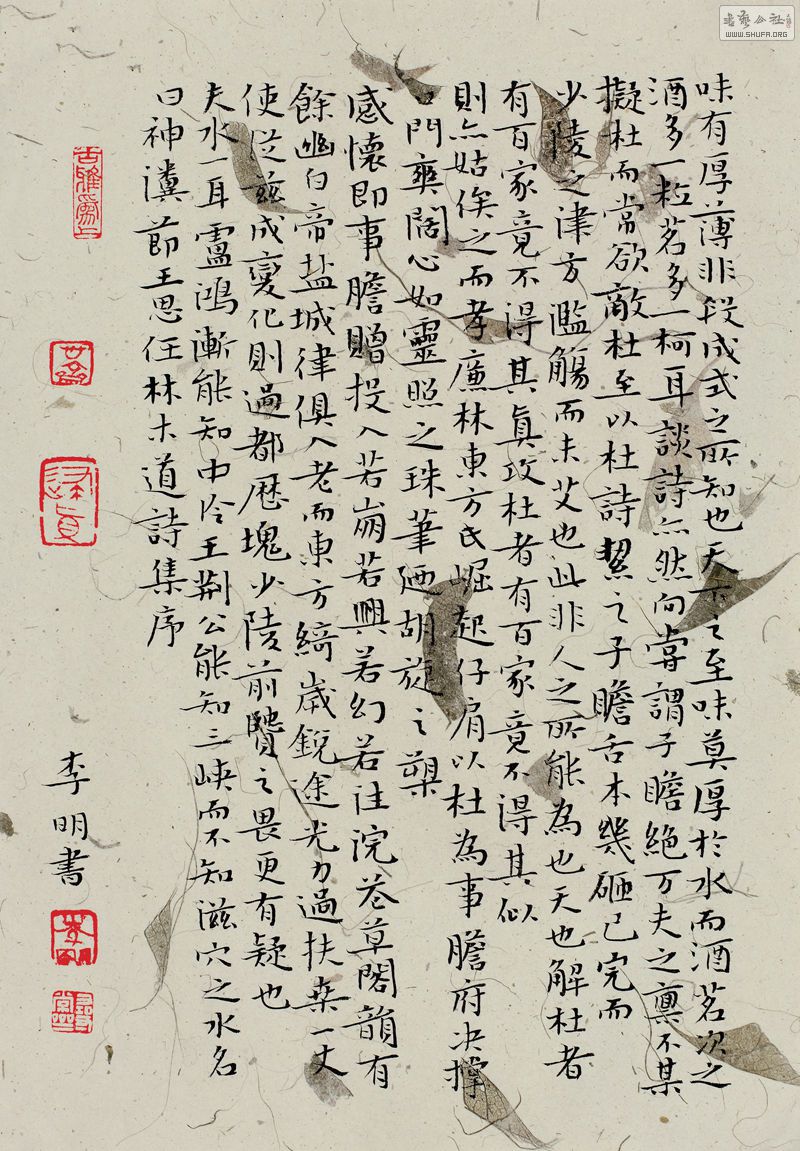 味有厚薄非段成式之所知也天下之至味莫厚於水而酒茗次之
酒多一粒茗多一柯耳談詩亦然向嘗謂子瞻絕万夫之稟不某
擬杜而常欲敵杜至以杜詩契之子瞻舌本幾砸已完而
少陵之津方濫觴而未艾也此非人之所能為也天也解杜者
有百家竟不得其真攻杜者有百家竟不得其似
則亦姑俟之而孝廉林東方氏崛起仔肩以杜為事膽府决撑
口門爽闊心如靈照之珠筆廼胡旋之槊
感懷即事瞻贈投入若崩若興若幻若注浣花草閣韻有
餘幽白帝盐城律俱入老而東方綺歲銳途光力過扶桒一丈
使從茲成變化則過都歷塊少陵前贒之畏更有疑也
夫水一耳盧鴻漸能知中泠王荆公能知三峡而不知滋穴之水名
曰神瀵節王思任林木道詩集序
李明書
書藝公社
WWW.SHUFA.ORG